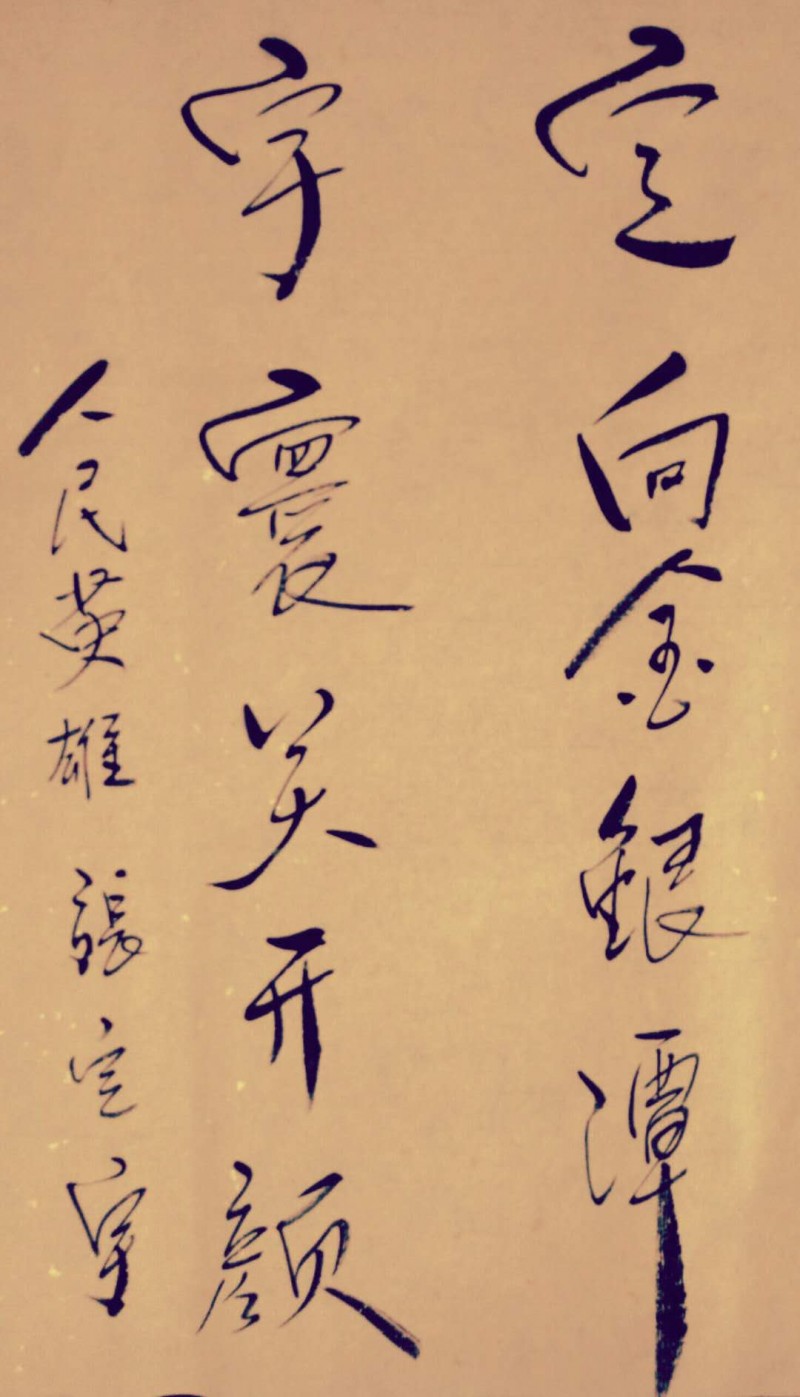 定向金銀潭
宇寰笑开颜
人民英雄張定宇